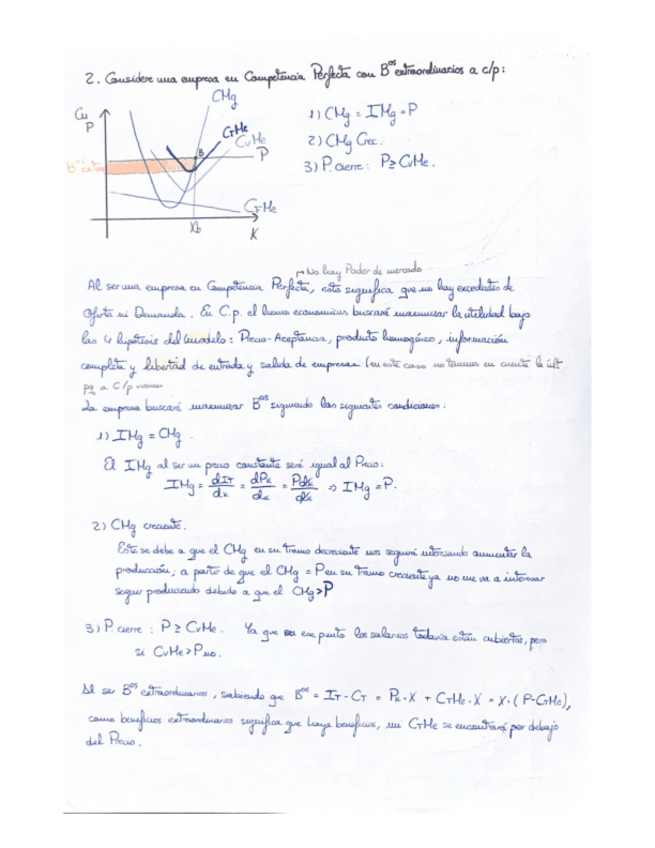 2. Considere una empresa en Competencia Perfecta con Bos extraordinarios a c/p:
CMg
Cu
P
CTMe
CvMe
B
P
Bos extra
CFMe
Xb
X
1) CMg = IMg = P
2) CMg Crec.
3) P. cierre: P≥ CvMe.
→ No hay Poder de mercado
Al ser una empresa en Competencia Perfecta, esto significa que no hay excedentes de
Oferta ni Demanda. En C.p. el homo economicus buscará maximizar la utilidad bajo
las 4 hipótesis del modelo: Precio-Aceptancia, producto homogéneo, información
completa y libertad de entrada y salida de empresas (en este caso no tenemos en cuenta la últ
pq a C/p
La empresa buscará maximizar Bos siguiendo las siguientes condiciones:
1) IMg = CMg.
El IMg al ser un precio constante será igual al Precio:
IMg = dIT/dx = dPx/dx = Pdx/dx => IMg = P.
2) CMg creciente.
Esto se debe a que el CMg en su tramo decreciente nos seguirá interesando aumentar la
producción; a partir de que el CMg = P en su tramo creciente ya no me va a interesar
seguir produciendo debido a que el CMg > P
3) P. cierre: P ≥ CvMe. Ya que en ese punto los salarios todavía están cubiertos, pero
si CvMe > P no.
Al ser Bos extraordinarios, sabiendo que Bos = IT - CT = Px · X + CTMe · X = X · (P - CTMe),
como beneficios extraordinarios significa que haya beneficios, mi CTMe se encontrará por debajo
del Precio.